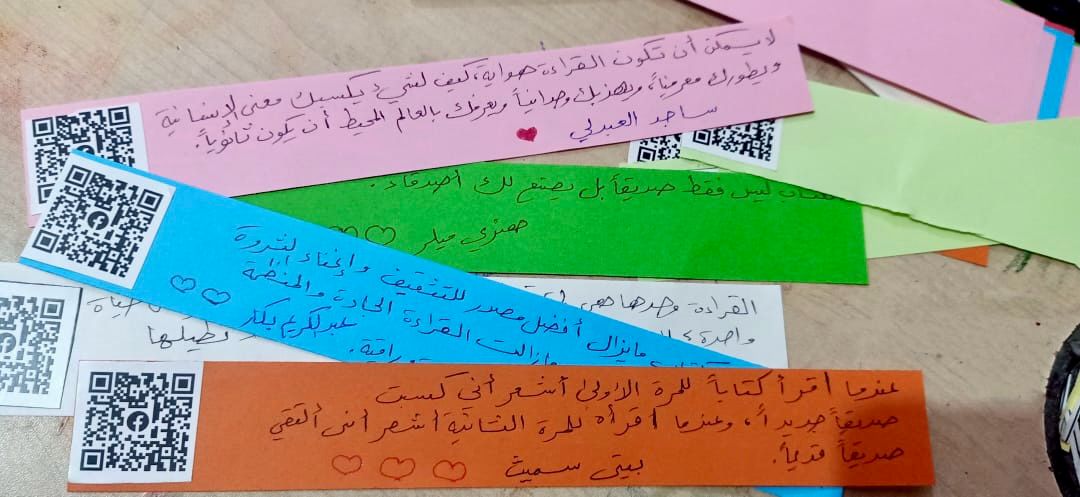 لا يمكن أن تكون القراءة هواية، كيف لشيء يكسبك معنى لإنسانية
ويطورك معرفياً، ويهذبك وجدانياً ويعرفك بالعالم المحيط أن يكون ثانوياً.
ساجد العبدلي
ليس فقط صديقاً بل يصنع لك أصدقاء.
هنري ميلر
مايزال أفضل مصدر للتثقيف وإغناء لثروة
مازالت القراءة الجادة والمنظمة
عبدالكريم بكار
القراءة وحدها هي
واحدة
حياة
عندما أقرأ كتاباً للمرة الأولى أشعر أني كسبت
صديقاً جديداً، وعندما أقرأه للمرة الثانية أشعر أنني ألتقي
صديقاً قديماً.
بيتي سميث